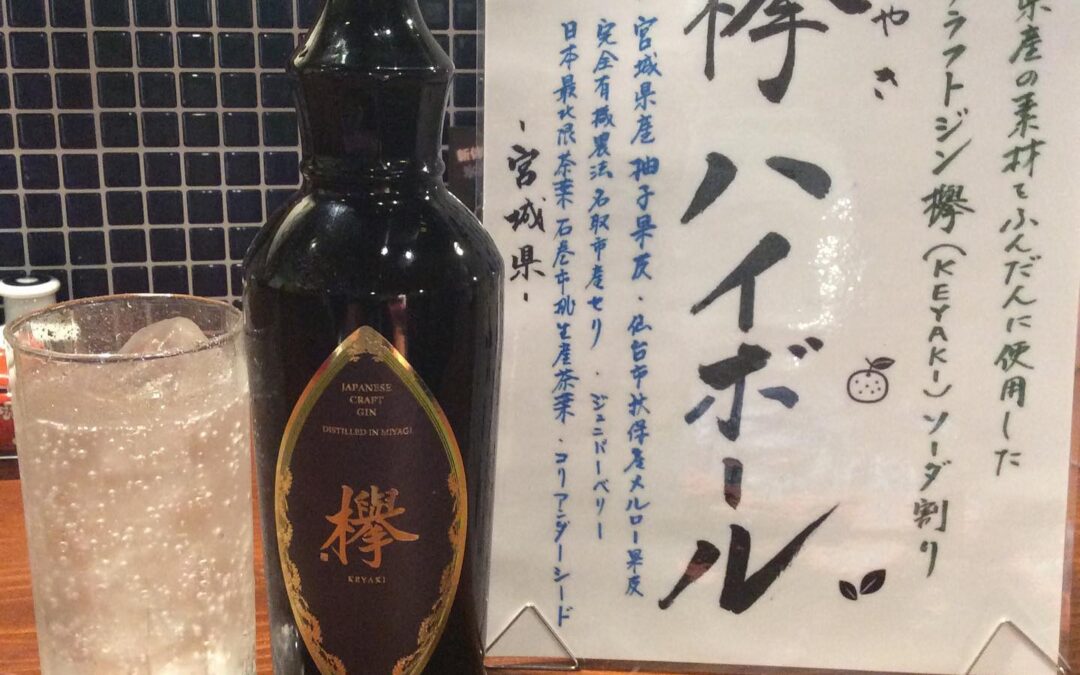 県産の素材をふんだんに使用した
ラフトジン欅(KEYAKI)ソーダ割り
やき
欅ハイボール
宮城県産柚子果皮・仙台市秋保産メルロー果皮
完全有機農法名取市産せり・ジュニパーベリー
日本最北限茶葉石巻市桃生産茶葉・コリアンダーシード
-宮城県-
JAPANESE
CRAFT
GIN
DISTILLED IN MIYAGI
欅
KEYAKI